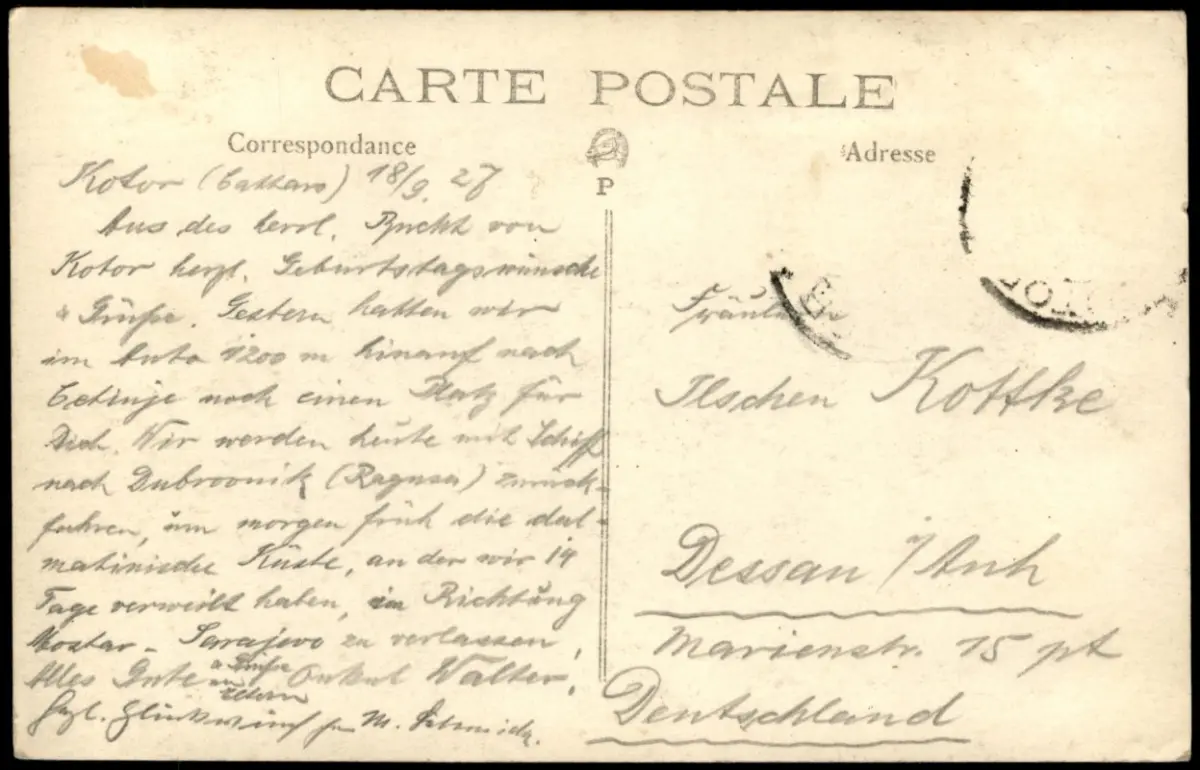 CARTE POSTALE
Correspondance
Kotor (Cattaro) 18/9. 27
Aus des herrl. Bucht von
Kotor herzl. Geburtstagswünsche
u Grüße. Gestern hatten wir
im Auto 1200 m hinauf nach
Cetinje noch einen Platz für
Dich. Wir werden heute mit Schiff
nach Dubrovnik (Ragusa) zurück-
fahren, um morgen früh die dal-
matinische Küste, an der wir 14
Tage verweilt haben, in Richtung
Mostar - Sarajevo zu verlassen,
Alles Gute u Grüße an Eltern Onkel Walter.
Hzl. Glückwunsch M.
P
Adresse
Fräulein
Ilschen Kottke
Dessau /Anh
Marienstr. 15 pt
Deutschland